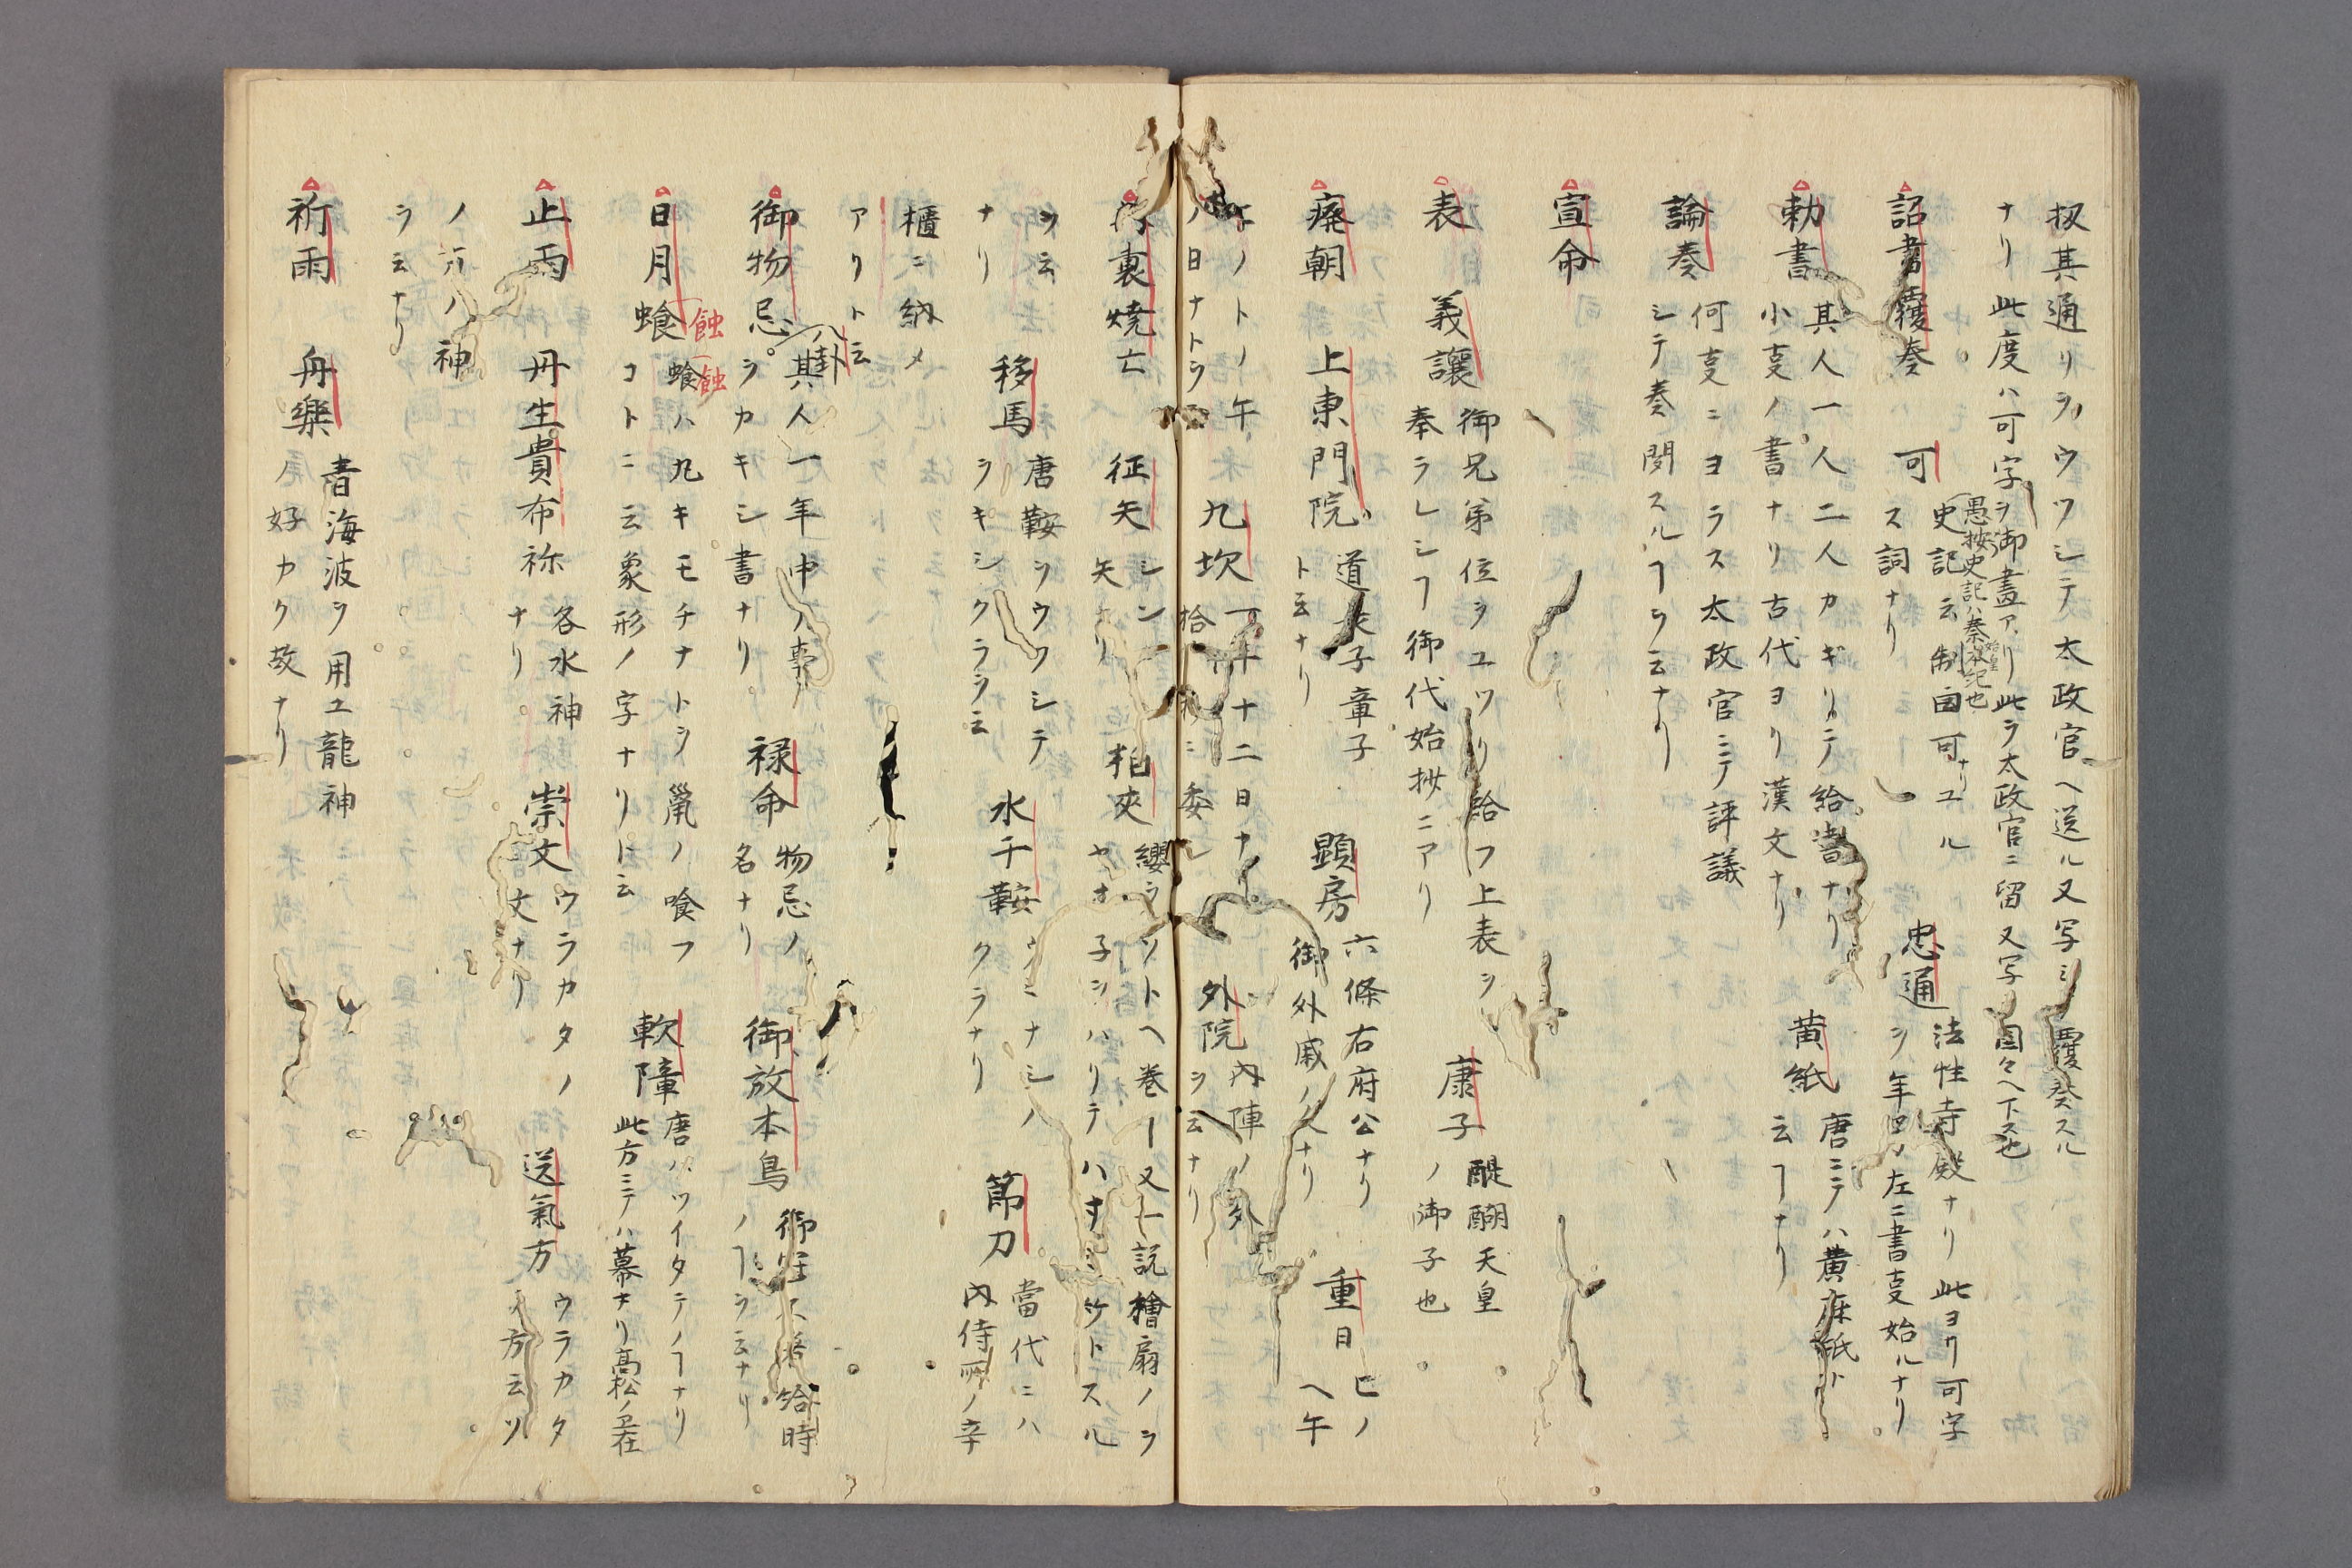 扨其通リヲウツシテ太政官ヘ送ル又写シ覆奏スル
ナリ此度ハ可字ヲ御畫アリ此ラ太政官ニ留又写国々ヘ下ス也
詔書覆奏
可
愚按史記ハ秦始皇本紀也
史記云制曰可ナリユル
ス詞ナリ
忠通
法性寺殿ナリ此ヨリ可字
ヲ年ノ左ニ書支始ルナリ
勅書
其人一人二人カギリテ給書ナリ
小支ノ書ナリ古代ヨリ漢文ナリ
黄紙
唐ニテハ黄麻紙ト
云フナリ
論奏
何支ニヨラス太政官ニテ評議
シテ奏聞スルヿヲ云ナリ
宣命
表
義讓
御兄弟位ヲユツリ給フ上表ヲ
奉ラレシヿ御代始抄ニアリ
康子
醍醐天皇
ノ御子也
廃朝
上東門院
道長子章子
ト云ナリ
顕房
六條右府公ナリ
御外戚ノ人ナリ
重日
巳ノ
ヘ午
ノトノ午
ノ日ナトヲ
九坎
一年十二日ナリ
拾芥抄ニ委シ
外院
内陣ノ外
ヲ云ナリ
内裏焼亡
征矢
シン
矢ナリ
柏夾
纓ヲソトヘ巻ー又一説檜扇ノヲ
ヤオ子ヲハリテハサミ竹トスル
ヲ云
ナリ
移馬
唐鞍ヲウツシテ
ヲキシクラヲ云
水干鞍
ウミナシノ
クラナリ
節刀
當代ニハ
内侍所ノ辛
櫃ニ納メ
アリト云
御物忌
八卦
其人一年中ノ事
ヲカキシ書ナリ
禄命
物忌ノ
名ナリ
御放本鳥
御給時
ノヿヲ云ナリ
日月蝕
蝕
蝕ハ丸キモチナトヲ鼠ノ喰フ
コトニ云象形ノ字ナリト云
軟障
唐ハツイタテノヿナリ
此方ニテハ幕ナリ高松ノ在
止雨
丹生貴布祢
各水神
ナリ
崇文
ウラカタノ
文ナリ
送氣方
ウラカタ
ノ方云ソ
ノ方ハ神
ヲ云ナリ
祈雨
舟樂
青海波ヲ用ユ龍神
尾好カク故ナリ